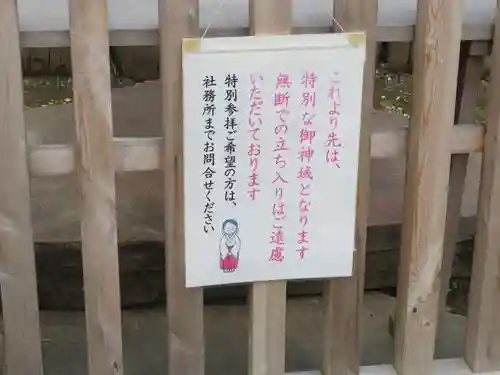 これより先は、
特別な御神域となります
無断での立ち入りはご遠慮
いただいております
特別参拝ご希望の方は、
社務所までお問合せください